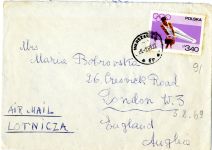 POLSKA
3.40
Mrs
Maria Bobrowska
26, Creswick Road
London W.3
England
Anglia
AIR MAIL
LOTNICZA
91
3.8.69